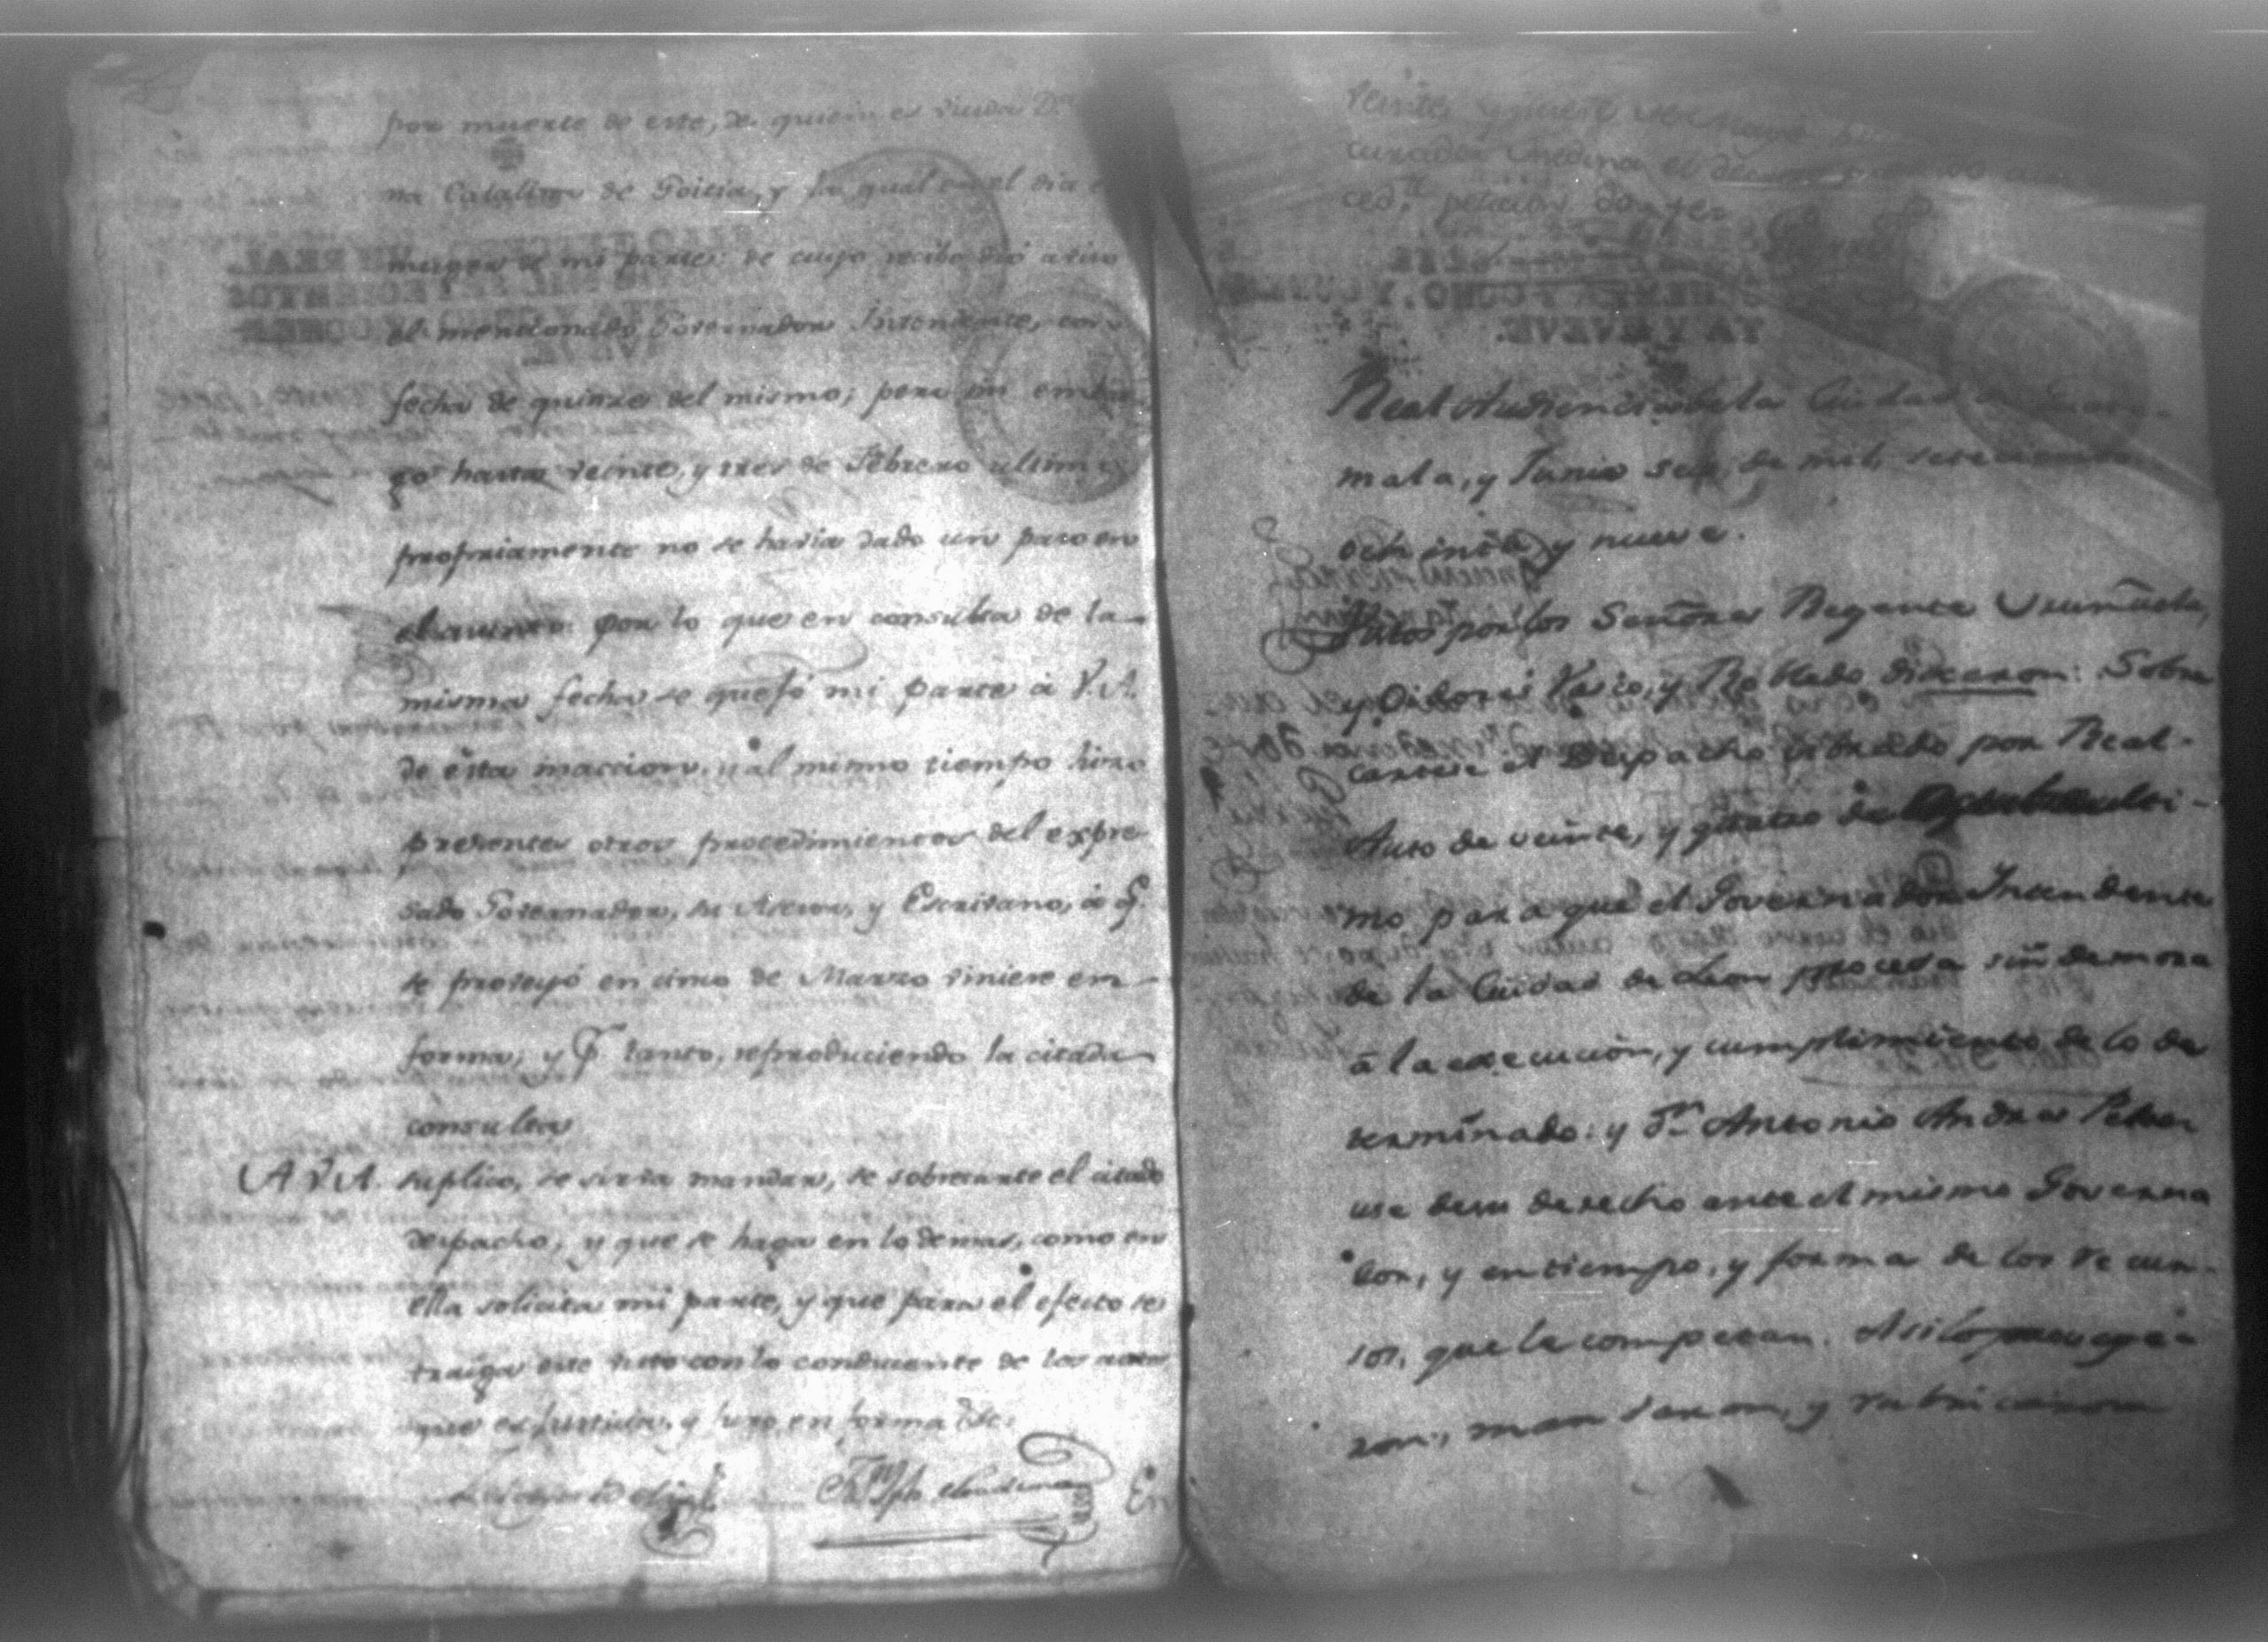 por muerte de este, de quien es viuda D.ª
na Catalina de Goitia, y la qual en el dia es
muger de mi parte: de cuyo recibo dió aviso
el mencionado Governador Intendente, con
fecha de quinze del mismo; pero sin embar
go hasta veinte, y tres de Febrero ultimo
propriamente no se havia dado un paso en
el asunto: por lo que en consulta de la
misma fecha se quejó mi parte á V.A.
de ésta inaccion, y al mismo tiempo hizo
presentes otros procedimientos del expre
sado Governador, su Asesor, y Escrivano, á q.
se proveyó en cinco de Marzo viniese en
forma; y p. tanto, reproduciendo la citada
consulta
A V.A. suplico, se sirva mandar, se sobrecarte el citado
despacho, y que se haga en lo demas, como en
ella solicita mi parte, y que para el efecto se
traiga este visto con lo conducente de los autos
que es justicia, y juro en forma &c.
En
Real Audiencia de la Ciudad de Guate-
mala, y Junio seis de mil, setecientos
ochenta, y nueve.
Vistos por los Señores Regente Uruñuela,
y Oidores Vasco, y Robledo dixeron: Sobre
cartese el Despacho librado por Real
Auto de veinte, y quatro de Octubre ulti-
mo para que el Governador Intendente
de la Ciudad de Leon proceda sin demora
á la execucion, y cumplimiento de lo de
terminado: y D.n Antonio Andres
use de su derecho ante el mismo Governa
dor, y en tiempo, y forma de los recur-
sos, que le competan. Asi lo proveye-
ron, mandaron, y rubricaron